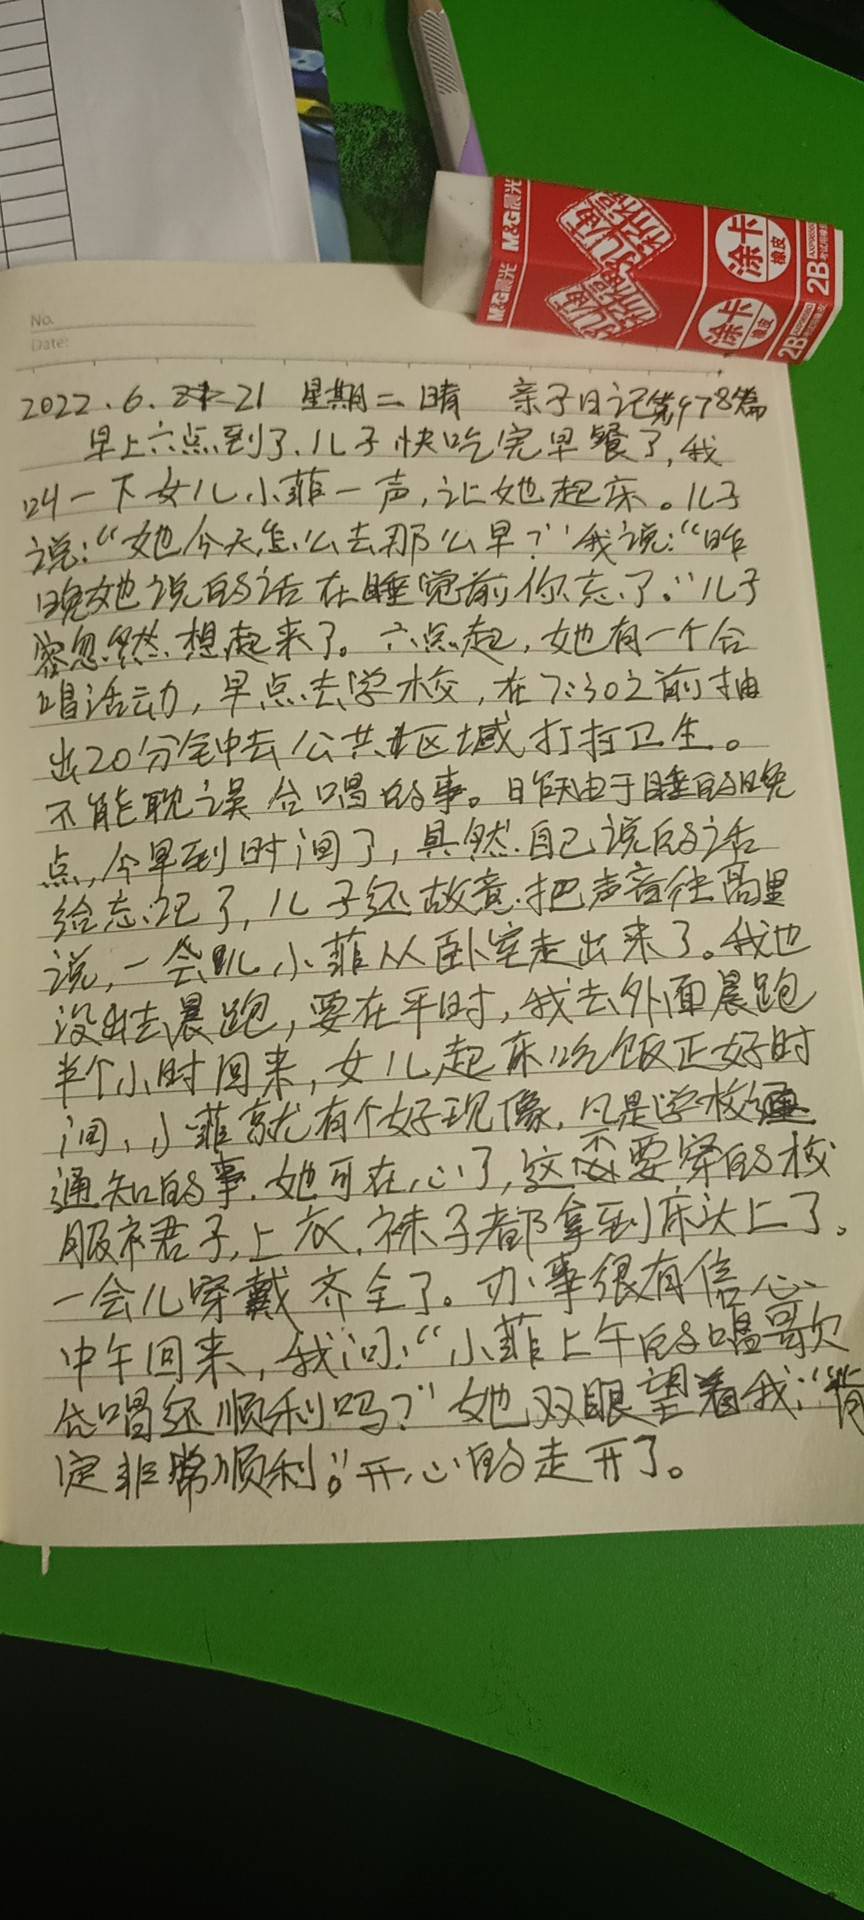 M&G晨光
孔庙祈福
涂卡
橡皮
2B
M&G晨光
孔庙祈福
涂卡
橡皮
2B
No.
Date:
2022.6.21 星期二 晴 亲子日记第978篇
早上六点到了,儿子快吃完早餐了,我
叫一下女儿小菲一声,让她起床。儿子
说:“她今天怎么去那么早?”我说:“昨
晚她说的话在睡觉前你忘了。”儿子
忽然想起来了。六点起,她有一个合
唱活动,早点去学校,在7:30之前抽
出20分钟去公共区域打扫卫生。
不能耽误合唱的事。昨天由于睡的晚
点,今早到时间了,具然自己说的话
给忘记了,儿子还故意把声音往高里
说,一会儿小菲从卧室走出来了。我也
没出去晨跑,要在平时,我去外面晨跑
半个小时回来,女儿起床吃饭正好时
间,小菲就有个好现像,凡是学校
通知的事,她可在心了,这不要穿的校
服裙子,上衣,袜子都拿到床头上了。
一会儿穿戴齐全了。办事很有信心
中午回来,我问:“小菲上午的唱歌
合唱还顺利吗?”她双眼望着我:“肯
定非常顺利。”开心的走开了。